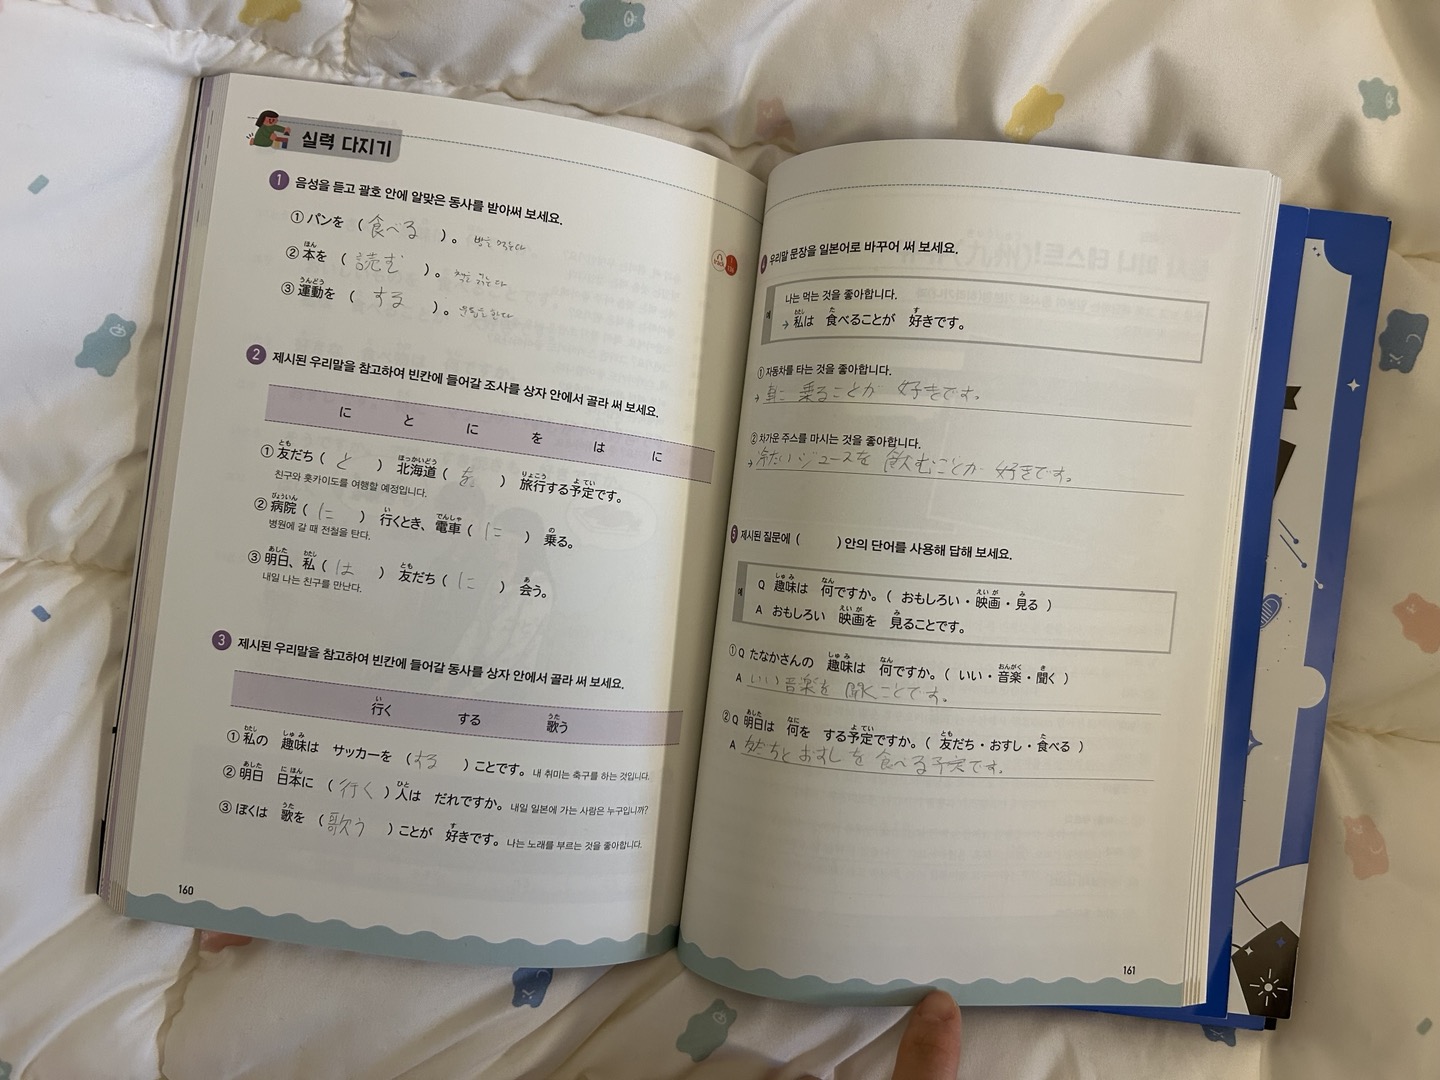 실력 다지기
1 음성을 듣고 괄호 안에 알맞은 동사를 받아써 보세요.
① パンを （食べる）。 빵을 먹는다
② 本を （読む）。 책을 읽는다
ほん
③ 運動を （する）。 운동을 한다
うんどう
2 제시된 우리말을 참고하여 빈칸에 들어갈 조사를 상자 안에서 골라 써 보세요.
に と に を は に
① 友だち（と） 北海道（を） 旅行する予定です。
とも ほっかいどう りょこう よてい
친구와 홋카이도를 여행할 예정입니다.
② 病院（に） 行くとき、電車（に） 乗る。
びょういん い でんしゃ の
병원에 갈 때 전철을 탄다.
③ 明日、私（は） 友だち（に） 会う。
あした わたし とも あ
내일 나는 친구를 만난다.
3 제시된 우리말을 참고하여 빈칸에 들어갈 동사를 상자 안에서 골라 써 보세요.
行く する 歌う
い うた
① 私の 趣味は サッカーを （する）ことです。 내 취미는 축구를 하는 것입니다.
わたし しゅみ
② 明日 日本に （行く）人は だれですか。 내일 일본에 가는 사람은 누구입니까?
あした にほん ひと
③ ぼくは 歌を （歌う）ことが 好きです。 나는 노래를 부르는 것을 좋아합니다.
うた す
160
4 우리말 문장을 일본어로 바꾸어 써 보세요.
예
나는 먹는 것을 좋아합니다.
→ 私は 食べることが 好きです。
わたし た す
① 자동차를 타는 것을 좋아합니다.
→ 車に 乗ることが 好きです。
② 차가운 주스를 마시는 것을 좋아합니다.
→ 冷たいジュースを 飲むことが 好きです。
5 제시된 질문에 （ ）안의 단어를 사용해 답해 보세요.
예
Q 趣味は 何ですか。（ おもしろい・映画・見る ）
しゅみ なん えいが み
A おもしろい 映画を 見ることです。
えいが み
① Q たなかさんの 趣味は 何ですか。（ いい・音楽・聞く ）
しゅみ なん おんがく き
A いい音楽を 聞くことです。
② Q 明日は 何を する予定ですか。（ 友だち・おすし・食べる ）
あした なに よてい とも た
A 友だちと おすしを 食べる予定です。
161